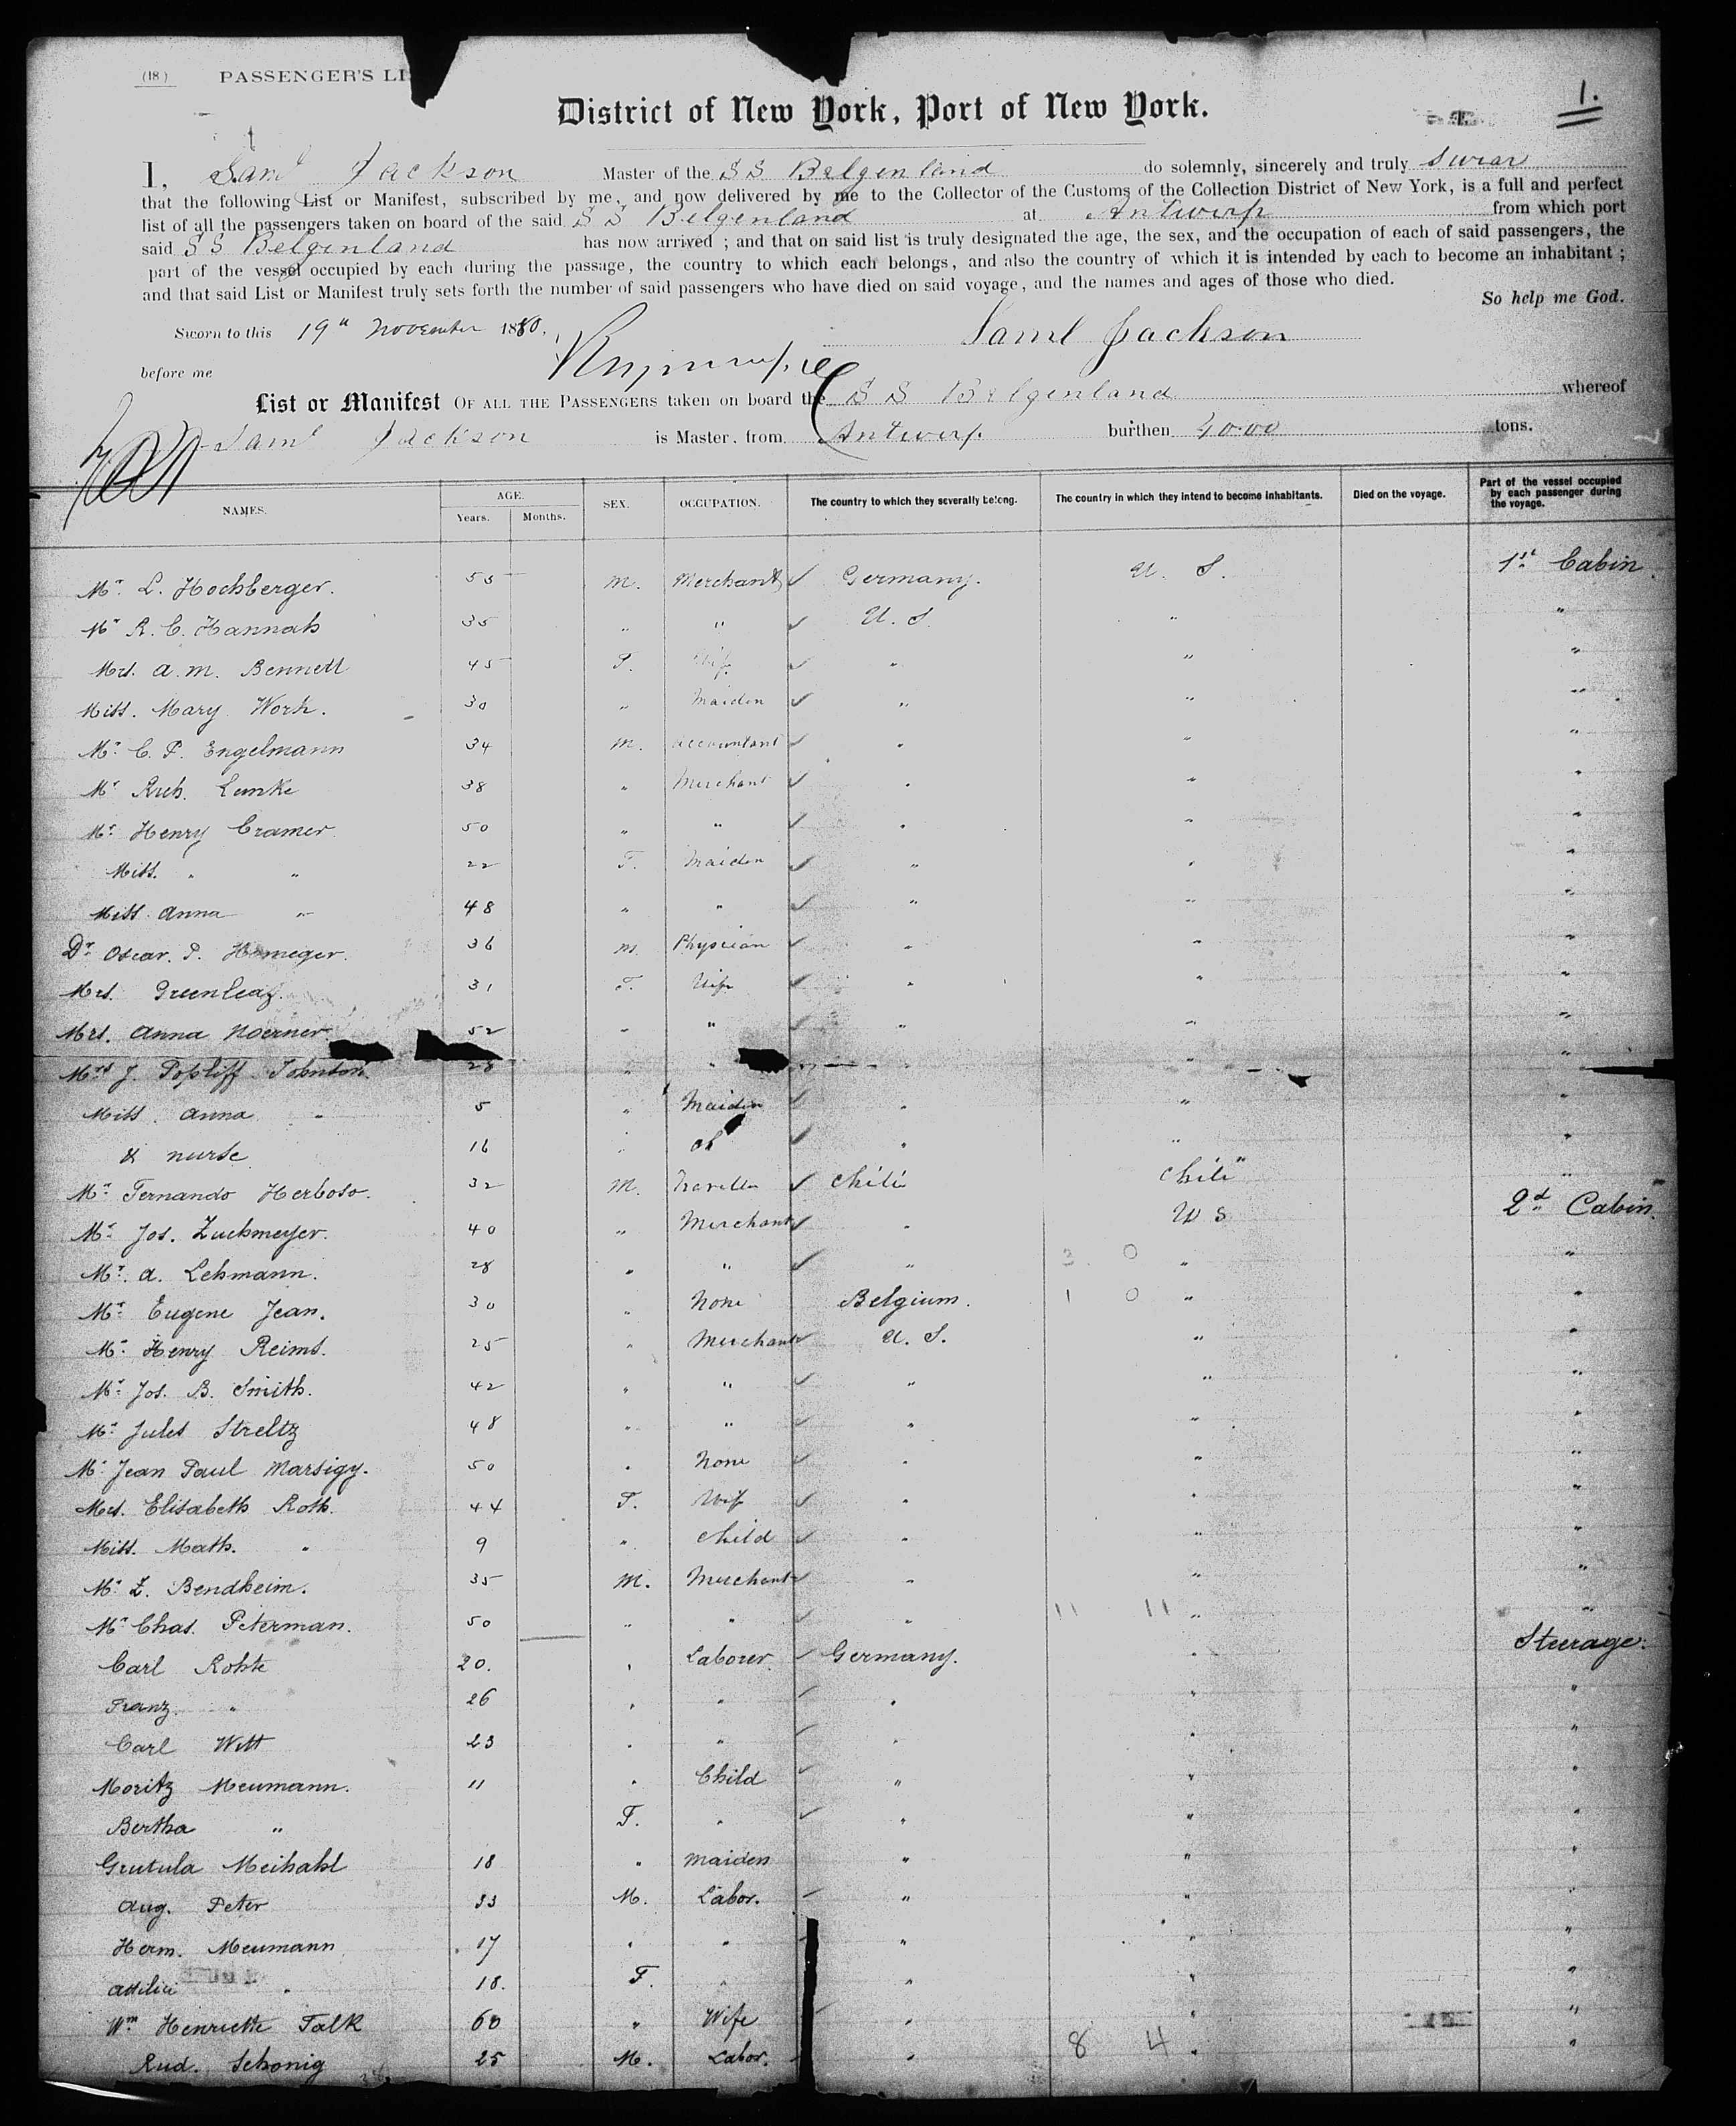 (18) PASSENGER'S LI
1.
District of New York, Port of New York.
I, Saml Jackson Master of the S S Belgenland do solemnly, sincerely and truly swear
that the following List or Manifest, subscribed by me, and now delivered by me to the Collector of the Customs of the Collection District of New York, is a full and perfect
list of all the passengers taken on board of the said S S Belgenland at Antwerp from which port
said S S Belgenland has now arrived ; and that on said list is truly designated the age, the sex, and the occupation of each of said passengers, the
part of the vessel occupied by each during the passage, the country to which each belongs, and also the country of which it is intended by each to become an inhabitant ;
and that said List or Manifest truly sets forth the number of said passengers who have died on said voyage, and the names and ages of those who died.
So help me God.
Sworn to this 19th November 1880, Saml Jackson
before me
List or Manifest OF ALL THE PASSENGERS taken on board the S S Belgenland whereof
Saml Jackson is Master, from Antwerp burthen tons.
NAMES. AGE. Years. Months. SEX. OCCUPATION. The country to which they severally belong. The country in which they intend to become inhabitants. Died on the voyage. Part of the vessel occupied by each passenger during the voyage.
Mr. L. Hochberger. 55 M. Merchant Germany. U. S. 1st Cabin
Mr R. C. Hannah 35 " " U. S. " "
Mrs. A. M. Bennett 45 F. Wife " " "
Miss. Mary Work. 30 " Maiden " " "
Mr. C. P. Engelmann 34 M. Accountant " " "
Mr Rich. Lemke 38 " Merchant " " "
Mr. Henry Cramer 50 " " " " "
Miss. " " 22 F. Maiden " " "
Miss. Anna " 48 " " " " "
Dr Oscar. P. 36 M. Physician " " "
Mrs. Greenleaf. 31 F. Wife " " "
Mrs. Anna Noerner. 52 " " " " "
Mrs J. Johnson 28 " " " " "
Miss. Anna " 5 " Maiden " " "
& nurse 16 " " " "
Mr. Fernando Herboso. 32 M. Traveller Chili Chili "
Mr. Jos. Zuckmeyer. 40 " Merchant " U S 2d Cabin.
Mr. A. Lehmann. 28 " " " 3 0 " "
Mr. Eugene Jean. 30 " None Belgium. 1 0 " "
Mr. Henry Reims. 25 " Merchant U. S. " "
Mr. Jos. B. Smith. 42 " " " " "
Mr. Jules Streltz 48 " " " " "
Mr. Jean Paul Marsigy. 50 " None " " "
Mrs. Elisabeth Roth. 44 F. Wife " " "
Miss. Math. " 9 " Child " " "
Mr. Z. Bendheim. 35 M. Merchant " " "
Mr Chas. Peterman. 50 " " " 11 11 " "
Carl Rohte 20. " Laborer. Germany. " Steerage.
Franz. " 26 " " " " "
Carl Witt 23 " " " " "
Moritz Meumann. 11 " Child " " "
Bertha " F. " " " "
Meihahl 18 " Maiden " " "
Aug. Peter 33 M. Labor. " " "
Herm. Meumann 17 " " " " "
" 18. F. " " " "
Wm Henriette Falk 60 " Wife " " "
Rud. Schonig 25 M. Labor. " 8 4 " "